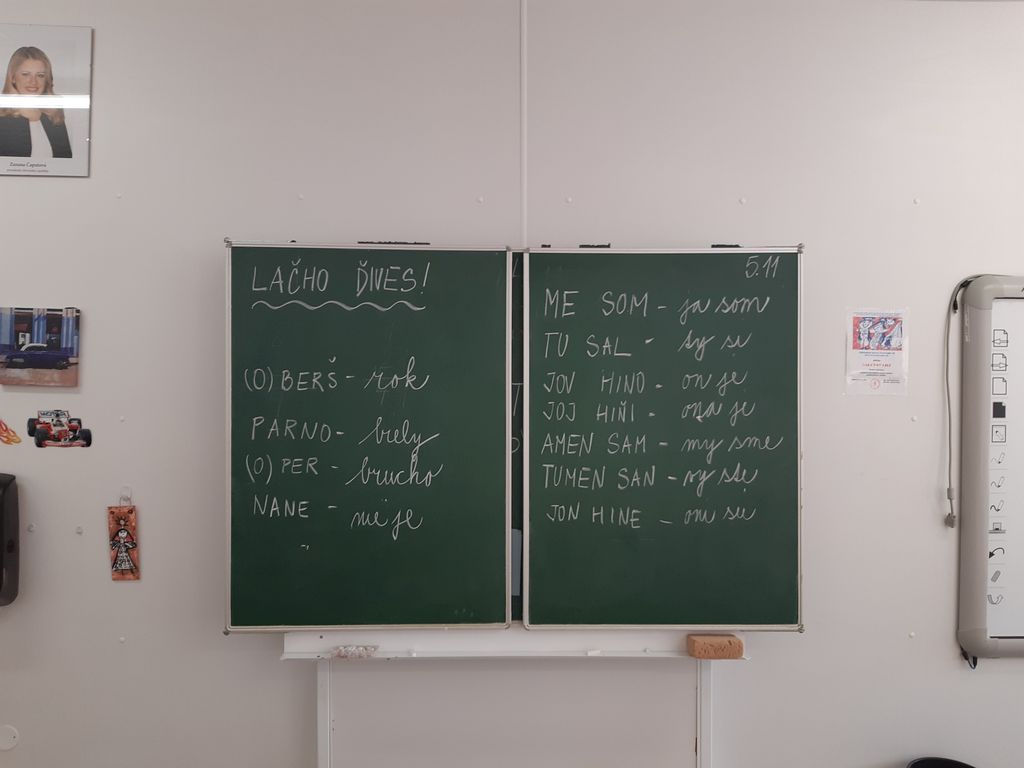 Zuzana Čaputová
LAČHO ĎIVES!
(O) BERŠ - rok
PARNO - biely
(O) PER - brucho
NANE - nie je
5.11
ME SOM - ja som
TU SAL - ty si
JOV HINO - on je
JOJ HIŇI - ona je
AMEN SAM - my sme
TUMEN SAN - vy ste
JON HINE - oni sú